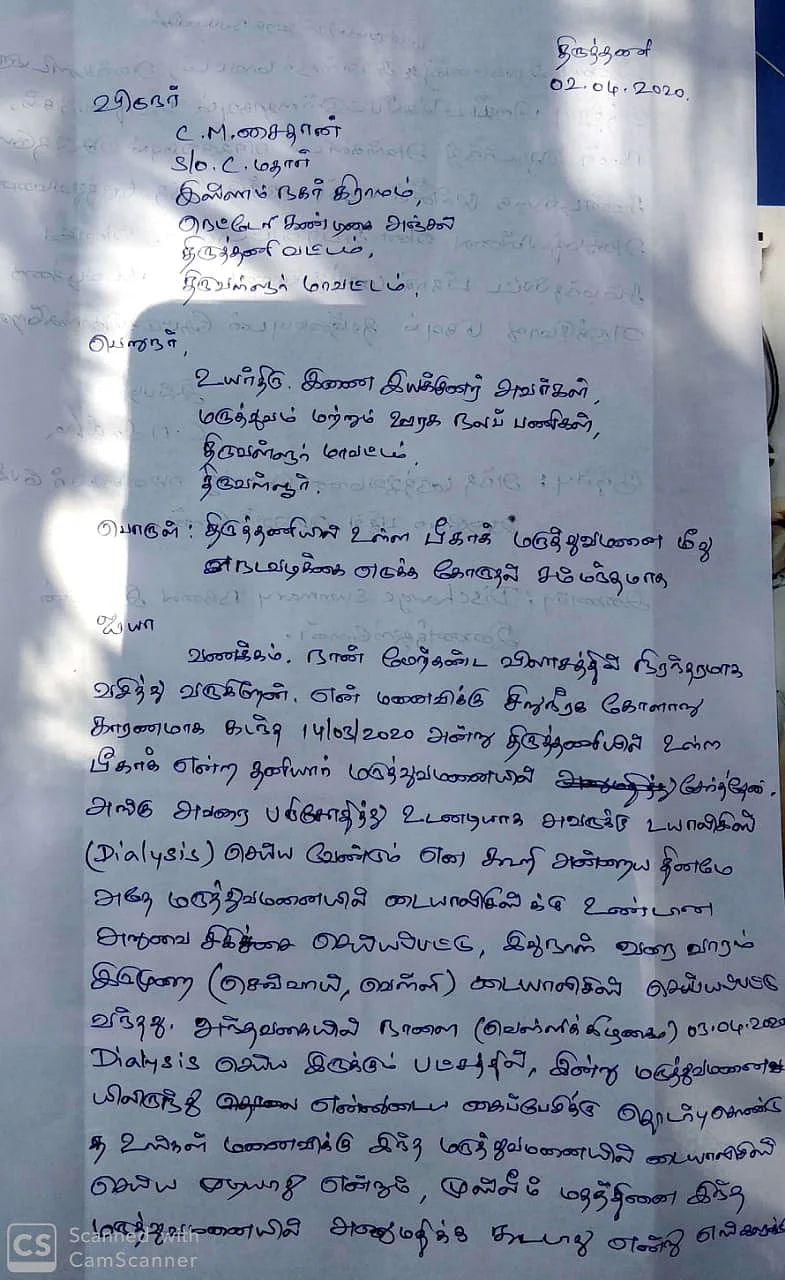 திருத்தணி
02.04.2020.
விடுநர்
C.M.சைதான்
S/o. C. மதார்
இஸ்லாம் நகர் கிராமம்,
அஞ்சல்
திருத்தணி வட்டம்,
திருவள்ளூர் மாவட்டம்.
பெறுநர்,
உயர்திரு. இணை இயக்குனர் அவர்கள்,
மருத்துவம் மற்றும் ஊரக நலப் பணிகள்,
திருவள்ளூர் மாவட்டம்,
திருவள்ளூர்.
பொருள் : திருத்தணியில் உள்ள பீகாக் மருத்துவமனை மீது
நடவடிக்கை எடுக்க கோருதல் சம்மந்தமாக
ஐயா
வணக்கம். நான் மேற்கண்ட விலாசத்தில் நிரந்தரமாக
வசித்து வருகிறேன். என் மனைவிக்கு சிறுநீரக கோளாறு
காரணமாக கடந்த 14/03/2020 அன்று திருத்தணியில் உள்ள
பீகாக் என்ற தனியார் மருத்துவமனையில் சேர்த்தேன்.
அங்கு அவரை பரிசோதித்து உடனடியாக அவருக்கு டயாலிசிஸ்
(Dialysis) செய்ய வேண்டும் என கூறி அன்றைய தினமே
அதே மருத்துவமனையில் டையாலிசிஸ் க்கு உண்டான
அறுவை சிகிச்சை செய்யப்பட்டு, இதுநாள் வரை வாரம்
இருமுறை (செவ்வாய், வெள்ளி) டையாலிசிஸ் செய்யப்பட்டு
வந்தது. அந்தவகையில் நாளை (வெள்ளிக்கிழமை) 03.04.2020
Dialysis செய்ய இருக்கும் பட்சத்தில், இன்று மருத்துவமனை
யிலிருந்து என்னுடைய கைப்பேசிக்கு தொடர்பு கொண்டு
உங்கள் மனைவிக்கு இந்த மருத்துவமனையில் டையாலிசிஸ்
செய்ய முடியாது என்றும், முஸ்லீம் மதத்தினை இந்த
மருத்துவமனையில் அனுமதிக்க கூடாது என்று
CS Scanned with
CamScanner